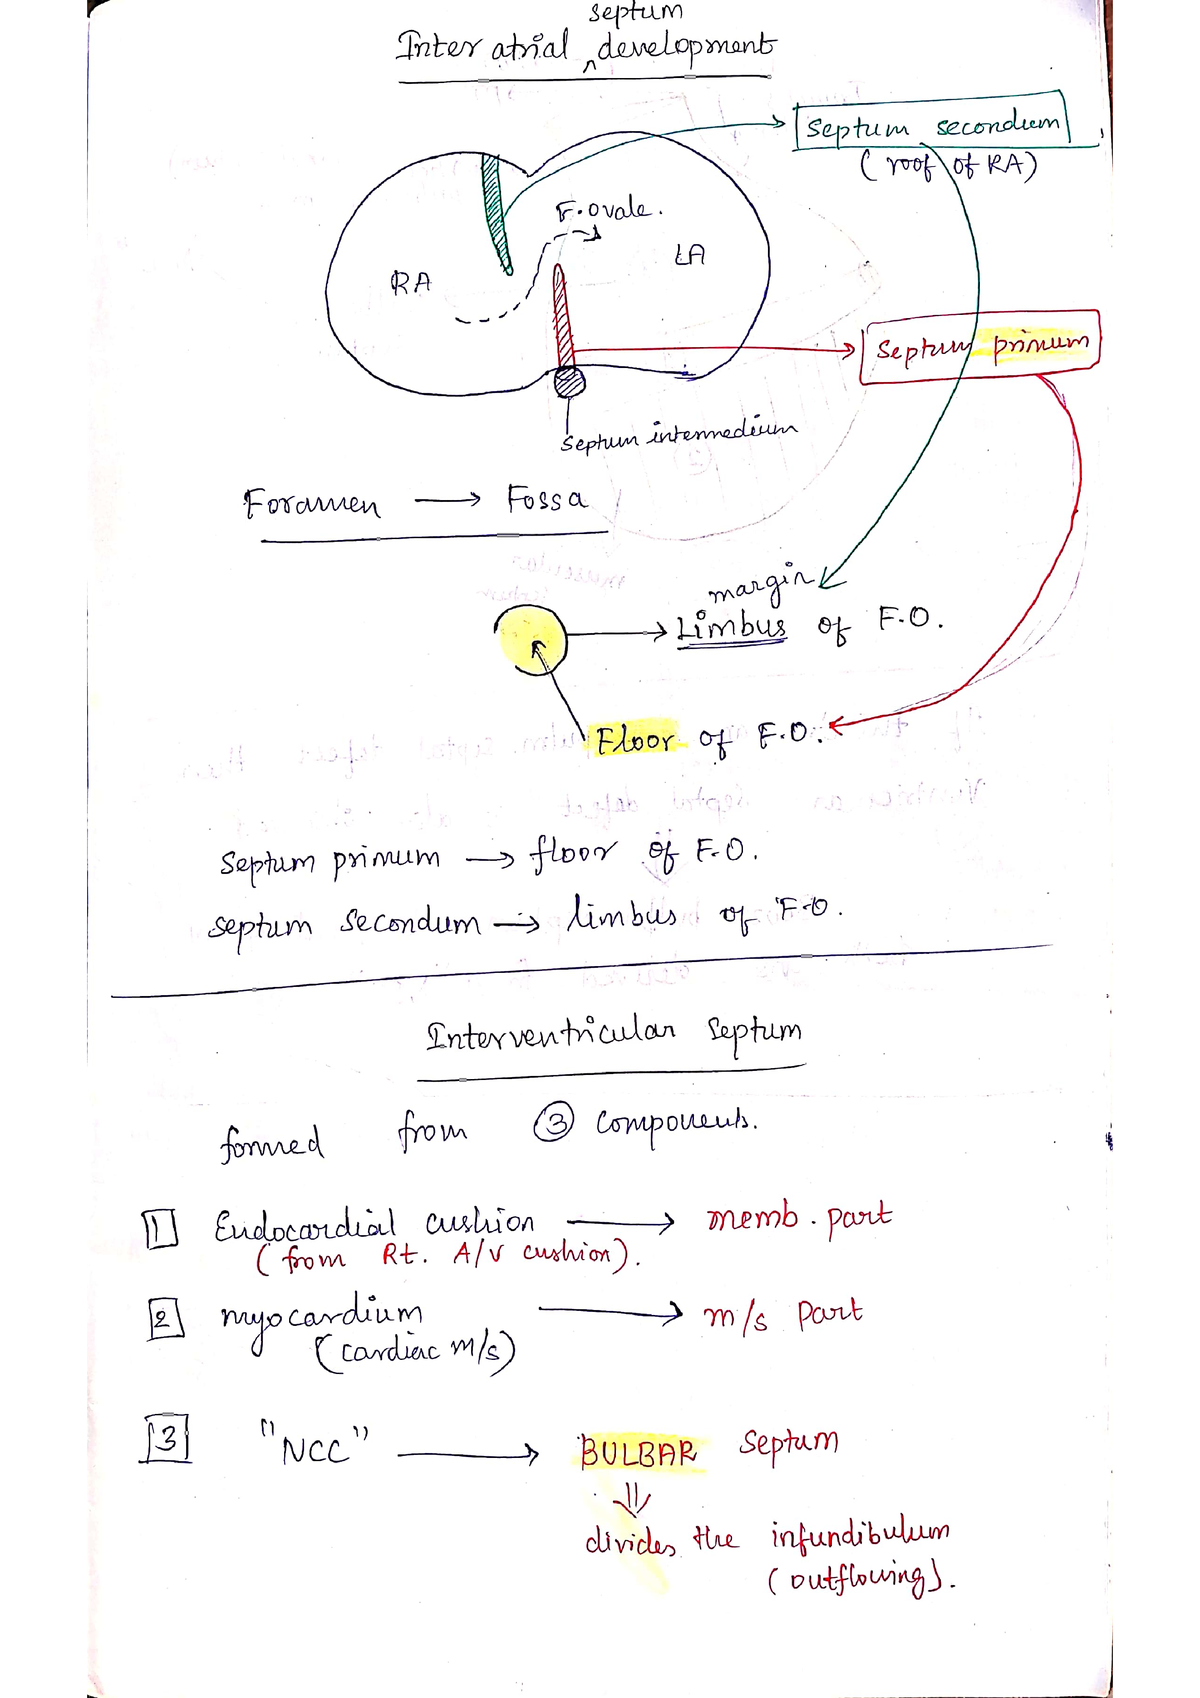 septum
Inter atrial ^ development
septum secondum
(roof of RA)
F.ovale.
RA
LA
septum primum
septum intermedium
Foramen → Fossa
margin
Limbus of F.O.
Floor of F.O.
septum primum → floor of F.O.
septum secondum → limbus of F.O.
Interventricular septum
formed from ③ components.
1 Endocardial cushion → memb. part
(from Rt. A/V cushion).
2 myocardium → m/s part
(cardiac m/s)
3 "NCC" → BULBAR septum
⇓
divides the infundibulum
(outflowing).